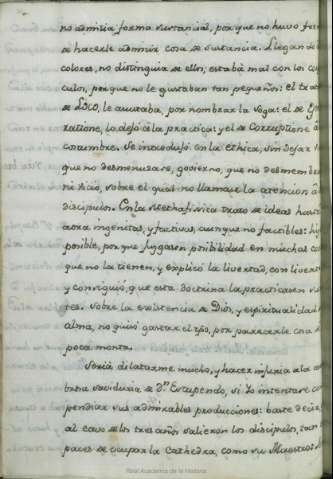 no admitia forma sustancial, porque no huvo for
de hacerle admitir cosa de sustancia. Llegando
colores, no distinguia de ellos, estaba mal con los
culos, porque no le gustaban tan pequeños: el trat
de Loco, le ajustaba, por nombrar la soga: el de
ratione, lo dejó a la practica: y el de Corruptione â
costumbre. Se introdujo en la Ethica, sin dejar v
que no desmenuzase, govierno, que no desmembra
ni vicio, sobre el qual no llamase la atencion â
discipulos. En la Methafisica trato de ideas hasta
aora ingenitas, y factivas, aunque no factibles: hi
posible, porque juzgaron posibilidad en muchas co
que no la tienen, y explicó la livertad, con livert
y consiguió, que esta doctrina la practicasen vi
tes. Sobre la existencia de Dios, y espiritualidad
alma, no quiso gastar el tpo, por parecerle cosa
poca monta.
Seria dilatarme mucho, y hacer injuria a la
brera sabiduria de Dn. Estupendo, si Yo intentare com
pendiar sus admirables producciones: baste decir
al cavo de los tres años salieron los discipulos, tan
paces de ocupar la Cathedra, como su Maestro
Real Academia de la Historia